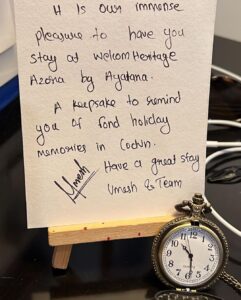 It is our immense
pleasure to have you
stay at WelcomHeritage
Azora by Ayatana.
A keepsake to remind
you of fond holiday
memories in Cochin.
Umesh
Have a great stay
Umesh & Team